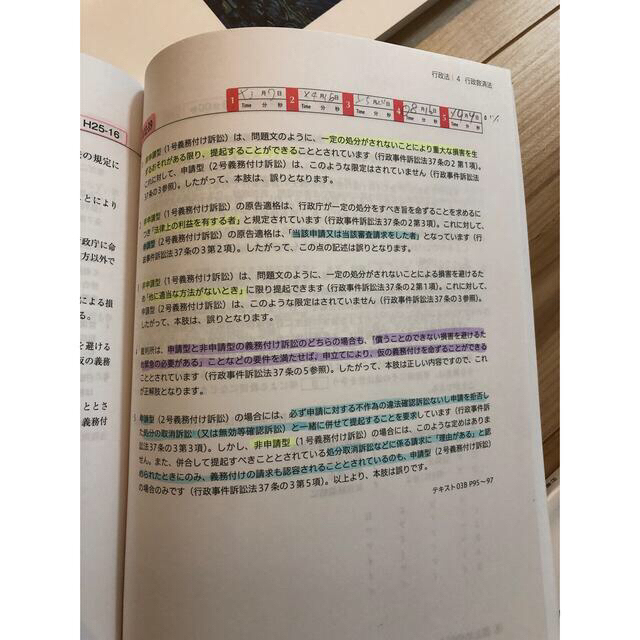 行政法 4 行政救済法
H25-16
1 月 日 2 月 日 3 月 日 4 月 日 5 月 日
Time 分 秒 Time 分 秒 Time 分 秒 Time 分 秒 Time 分 秒
非申請型（1号義務付け訴訟）は、問題文のように、一定の処分がされないことにより重大な損害を生
ずるおそれがある限り、提起することができることとされています（行政事件訴訟法37条の2第1項）。
これに対して、申請型（2号義務付け訴訟）は、このような限定はされていません（行政事件訴訟法
37条の3参照）。したがって、本肢は、誤りとなります。
非申請型（1号義務付け訴訟）の原告適格は、行政庁が一定の処分をすべき旨を命ずることを求めるに
つき「法律上の利益を有する者」と規定されています（行政事件訴訟法37条の2第3項）。これに対して、
申請型（2号義務付け訴訟）の原告適格は、「当該申請又は当該審査請求をした者」となっています（行
政事件訴訟法37条の3第2項）。したがって、この点の記述は誤りとなります。
非申請型（1号義務付け訴訟）は、問題文のように、一定の処分がされないことによる損害を避けるた
め「他に適当な方法がないとき」に限り提起できます（行政事件訴訟法37条の2第1項）。これに対して、
申請型（2号義務付け訴訟）は、このような限定はされていません（行政事件訴訟法37条の3参照）。
したがって、本肢は、誤りとなります。
裁判所は、申請型と非申請型の義務付け訴訟のどちらの場合も、「償うことのできない損害を避けるた
め緊急の必要がある」ことなどの要件を満たせば、申立てにより、仮の義務付けを命ずることができる
こととされています（行政事件訴訟法37条の5参照）。したがって、本肢は正しい内容ですので、これ
が正解肢となります。
申請型（2号義務付け訴訟）の場合には、必ず申請に対する不作為の違法確認訴訟ないし申請を拒否し
た処分の取消訴訟（又は無効等確認訴訟）と一緒に併せて提起することを要求しています（行政事件
訴訟法37条の3第3項）。しかし、非申請型（1号義務付け訴訟）の場合には、このような定めはありま
せん。また、併合して提起すべきこととされている処分取消訴訟などに係る請求に「理由がある」と認
められたときにのみ、義務付けの請求も認容されることとされているのも、申請型（2号義務付け訴訟）
の場合のみです（行政事件訴訟法37条の3第5項）。以上より、本肢は誤りです。
テキスト03B P95〜97
の規定に
ことにより
政庁に命
方以外で
による損
る。
を避ける
仮の義務
ととさ
義務付